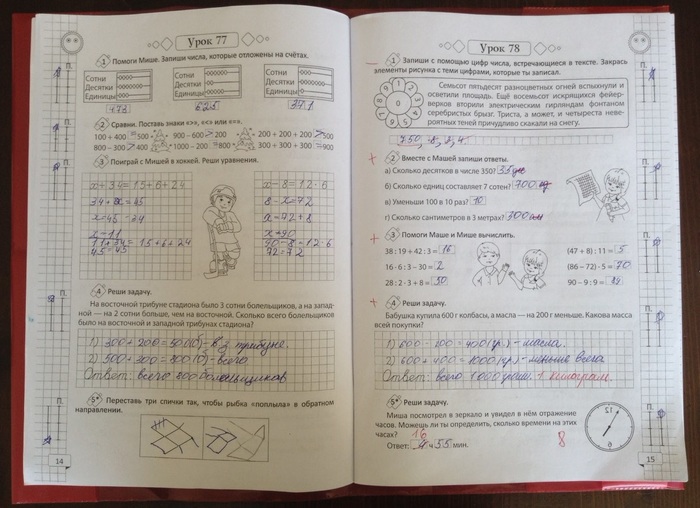 Урок 77
1 Помоги Мише. Запиши числа, которые отложены на счётах.
Сотни
Десятки
Единицы
Сотни
Десятки
Единицы
Сотни
Десятки
Единицы
473 625 341
2 Сравни. Поставь знаки <>>, <<> или <=>.
100 + 400 = 500 900 – 600 > 200 200 + 200 + 200 > 500
800 – 300 > 400 1000 – 200 = 800 300 + 300 + 300 = 900
3 Поиграй с Мишей в хоккей. Реши уравнения.
x + 34 = 15 + 6 + 24
34 + x = 45
x = 45 - 34
x = 11
11 + 34 = 15 + 6 + 24
45 = 45
x - 8 = 12 · 6
8 - x = 72
x = 72 + 8
x = 80
80 - 8 = 12 · 6
72 = 72
4 Реши задачу.
На восточной трибуне стадиона было 3 сотни болельщиков, а на запад-
ной — на 2 сотни больше, чем на восточной. Сколько всего болельщиков
было на восточной и западной трибунах стадиона?
1) 300 + 200 = 500 (б) - в з. трибуне.
2) 500 + 300 = 800 (б) - всего
Ответ: всего 800 болельщиков
5* Переставь три спички так, чтобы рыбка «поплыла» в обратном
направлении.
14
П.
Урок 78
1 Запиши с помощью цифр числа, встречающиеся в тексте. Закрась
элементы рисунка с теми цифрами, которые ты записал.
Семьсот пятьдесят разноцветных огней вспыхнули и
осветили площадь. Ещё восемьсот искрящихся фейер-
верков вторили электрическим гирляндам фонтаном
серебристых брызг. Триста, а может, и четыреста неве-
роятных теней причудливо скакали на снегу.
750, 8, 3, 4.
2 Вместе с Машей запиши ответы.
а) Сколько десятков в числе 350? 35
б) Сколько единиц составляет 7 сотен? 700 ед
в) Уменьши 100 в 10 раз? 10
г) Сколько сантиметров в 3 метрах? 300 см
3 Помоги Маше и Мише вычислить.
38 : 19 + 42 : 3 = 16 (47 + 8) : 11 = 5
16 · 6 : 3 – 30 = 2 (86 – 72) · 5 = 70
28 : 2 · 3 + 8 = 50 90 – 9 : 9 = 89
4 Реши задачу.
Бабушка купила 600 г колбасы, а масла — на 200 г меньше. Какова масса
всей покупки?
1) 600 - 200 = 400 (гр.) - масла.
2) 600 + 400 = 1000 (гр.) - меньше всего
Ответ: всего 1000 грамм. 1 килограмм.
5* Реши задачу.
Миша посмотрел в зеркало и увидел в нём отражение
часов. Можешь ли ты определить, сколько времени на этих
часах?
16 8
Ответ: ч 55 мин.
12
15
П.